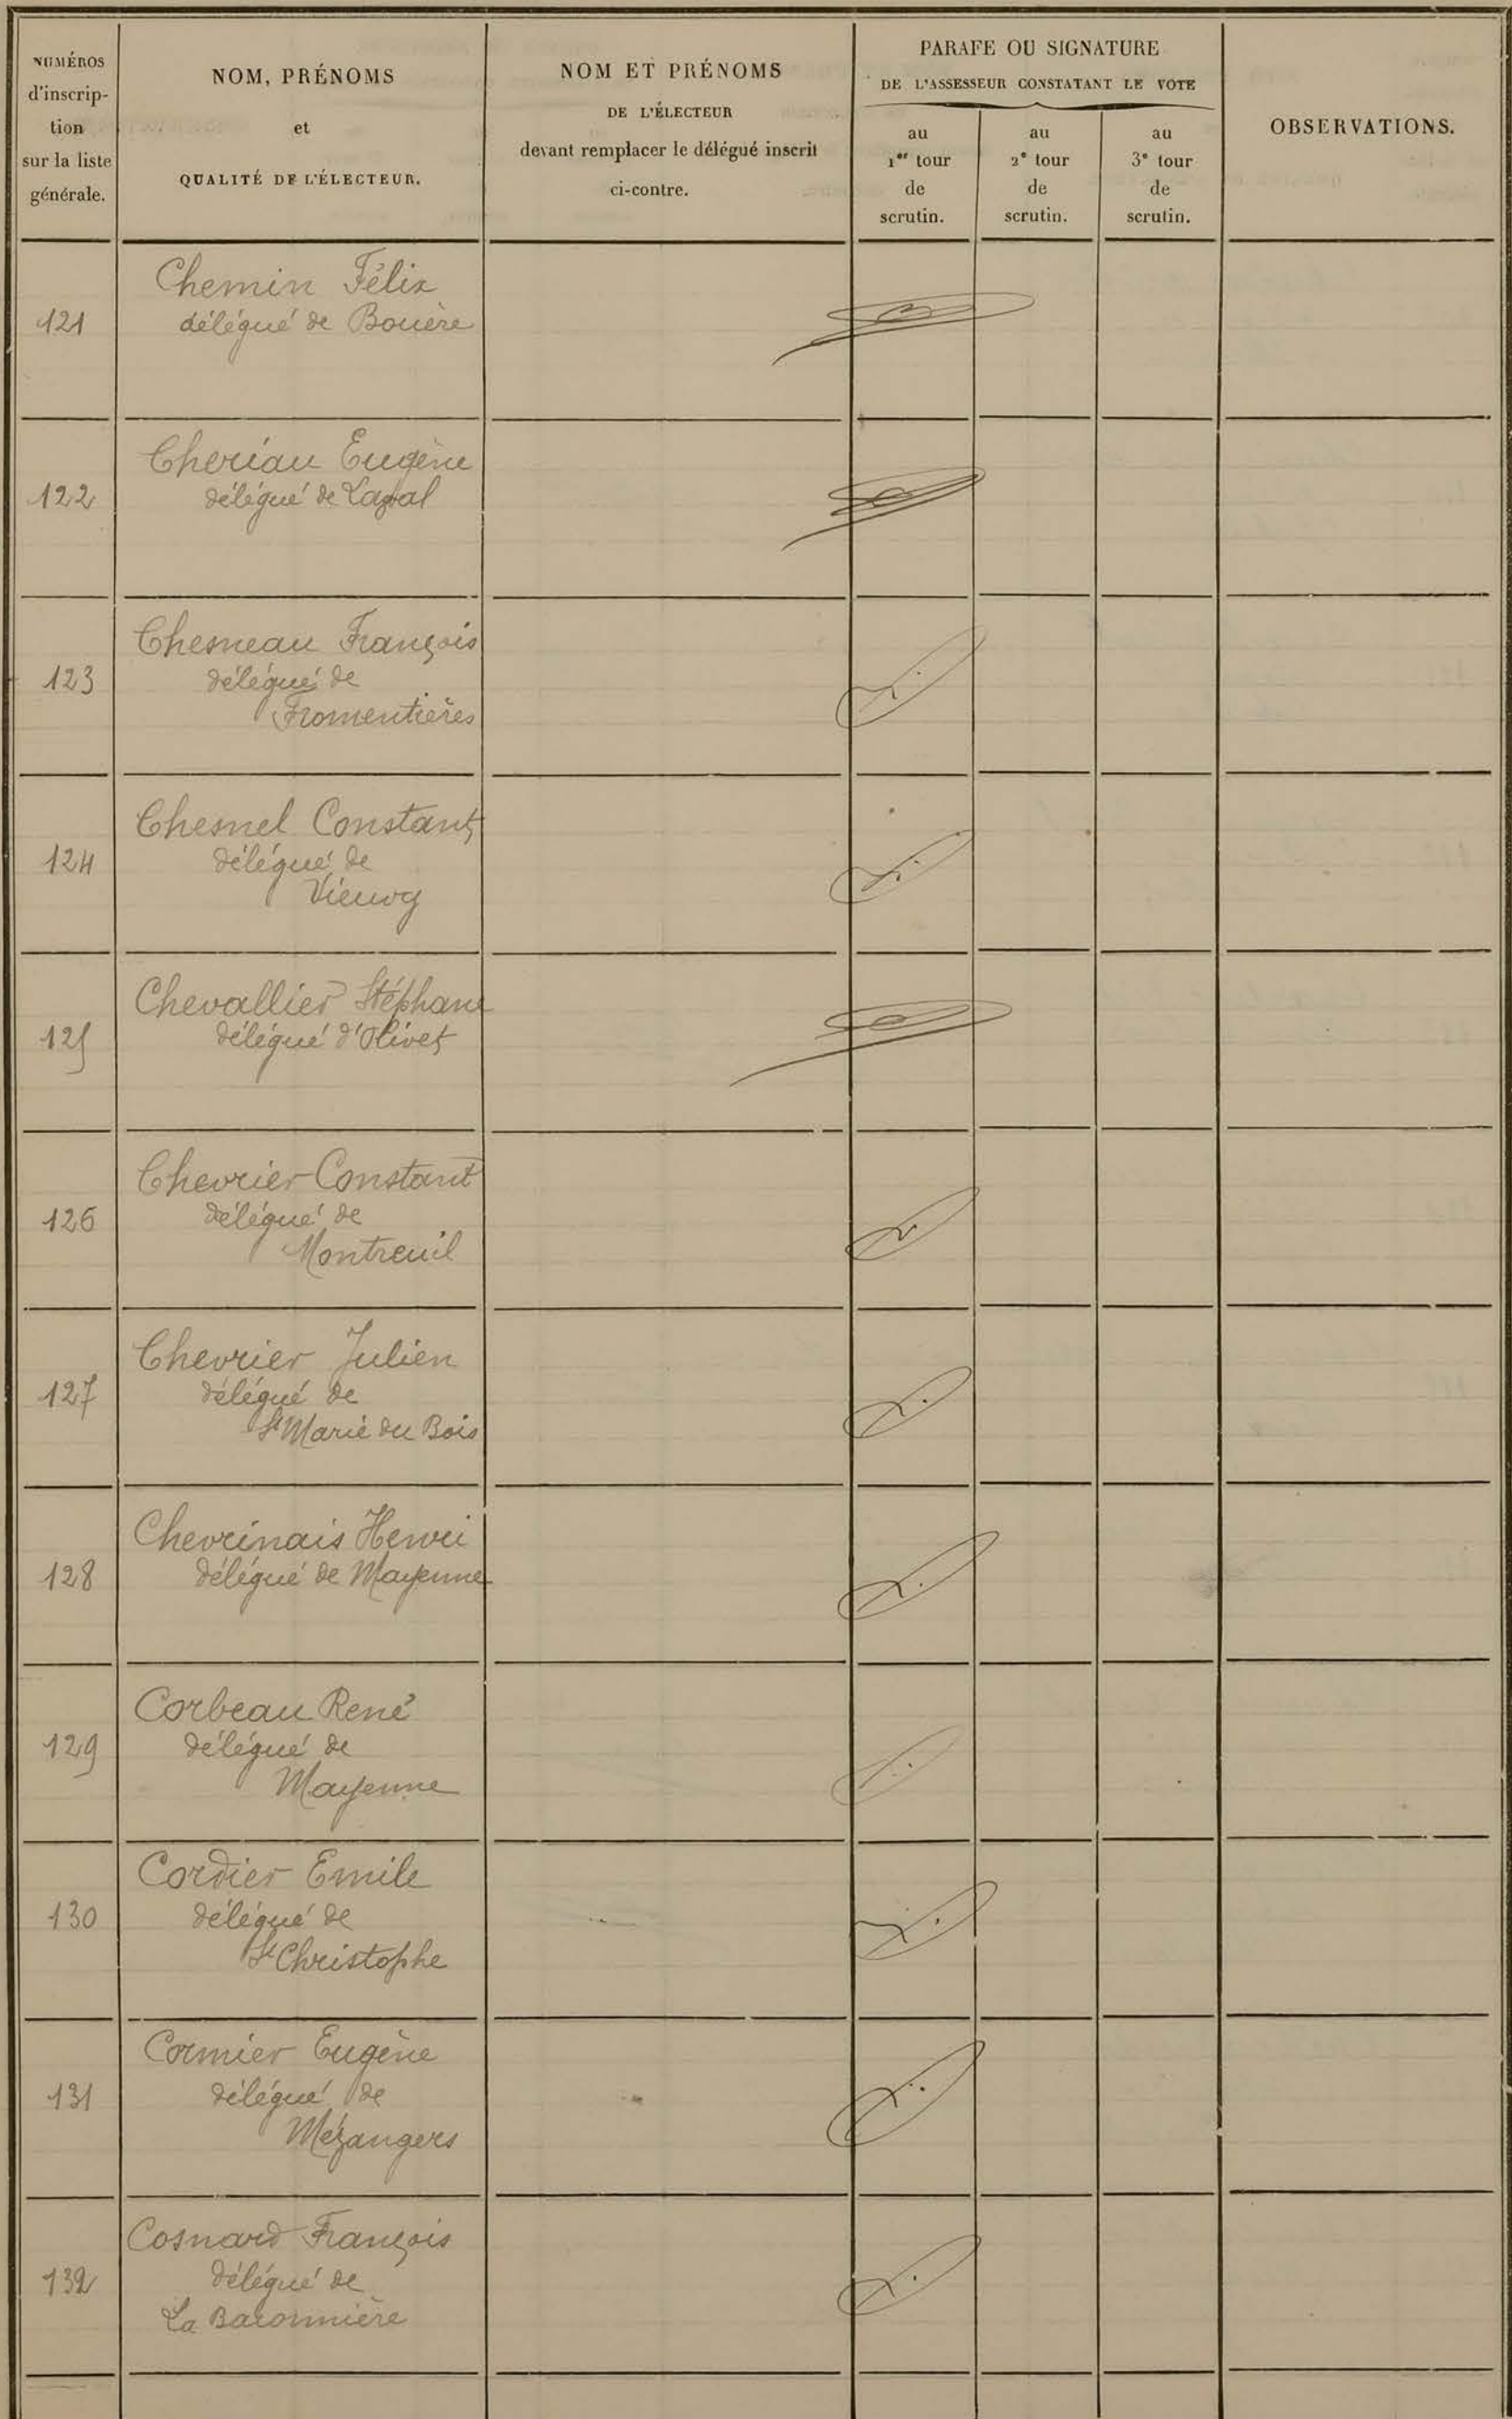 NUMÉROS
d'inscrip-
tion
sur la liste
générale.
NOM, PRÉNOMS
et
QUALITÉ DE L'ÉLECTEUR.
NOM ET PRÉNOMS
DE L'ÉLECTEUR
devant remplacer le délégué inscrit
ci-contre.
PARAFE OU SIGNATURE
DE L'ASSESSEUR CONSTATANT LE VOTE
au
1er tour
de
scrutin.
au
2e tour
de
scrutin.
au
3e tour
de
scrutin.
OBSERVATIONS.
121
Chemin Félix
délégué de Bouère
122
Cheriau Eugène
délégué de Laval
123
Chesneau François
délégué de
Fromentières
124
Chesnel Constant
délégué de
Vieuvy
125
Chevallier Stéphane
délégué d'Olivet
126
Chevrier Constant
délégué de
Montreuil
127
Chevrier Julien
délégué de
St Marie du Bois
128
Chevrinais Henri
délégué de Mayenne
129
Corbeau René
délégué de
Mayenne
130
Cordier Emile
délégué de
St Christophe
131
Cormier Eugène
délégué de
Mézangers
132
Cosnard François
délégué de
La Baconnière